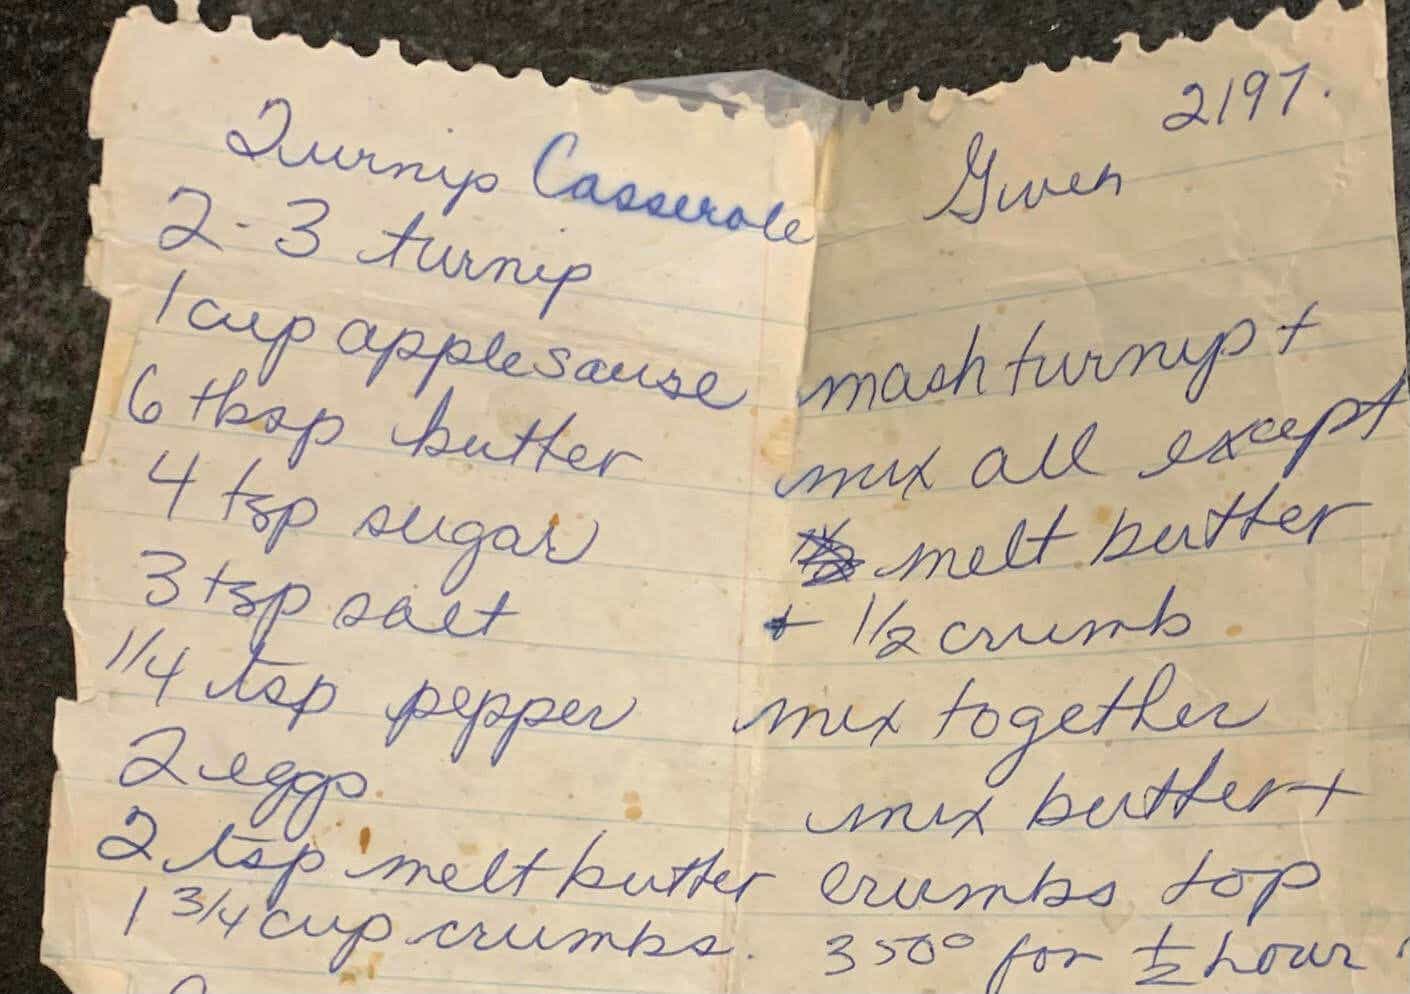 2197.
Turnip Casserole
Gwen
2-3 turnip
1 cup applesause
6 tbsp butter
4 tsp sugar
3 tsp salt
1/4 tsp pepper
2 eggs
2 tsp melt butter
1 3/4 cup crumbs.
mash turnip +
mix all except
melt butter
+ 1/2 crumb
mix together
mix butter +
crumbs top
350° for 1/2 hour